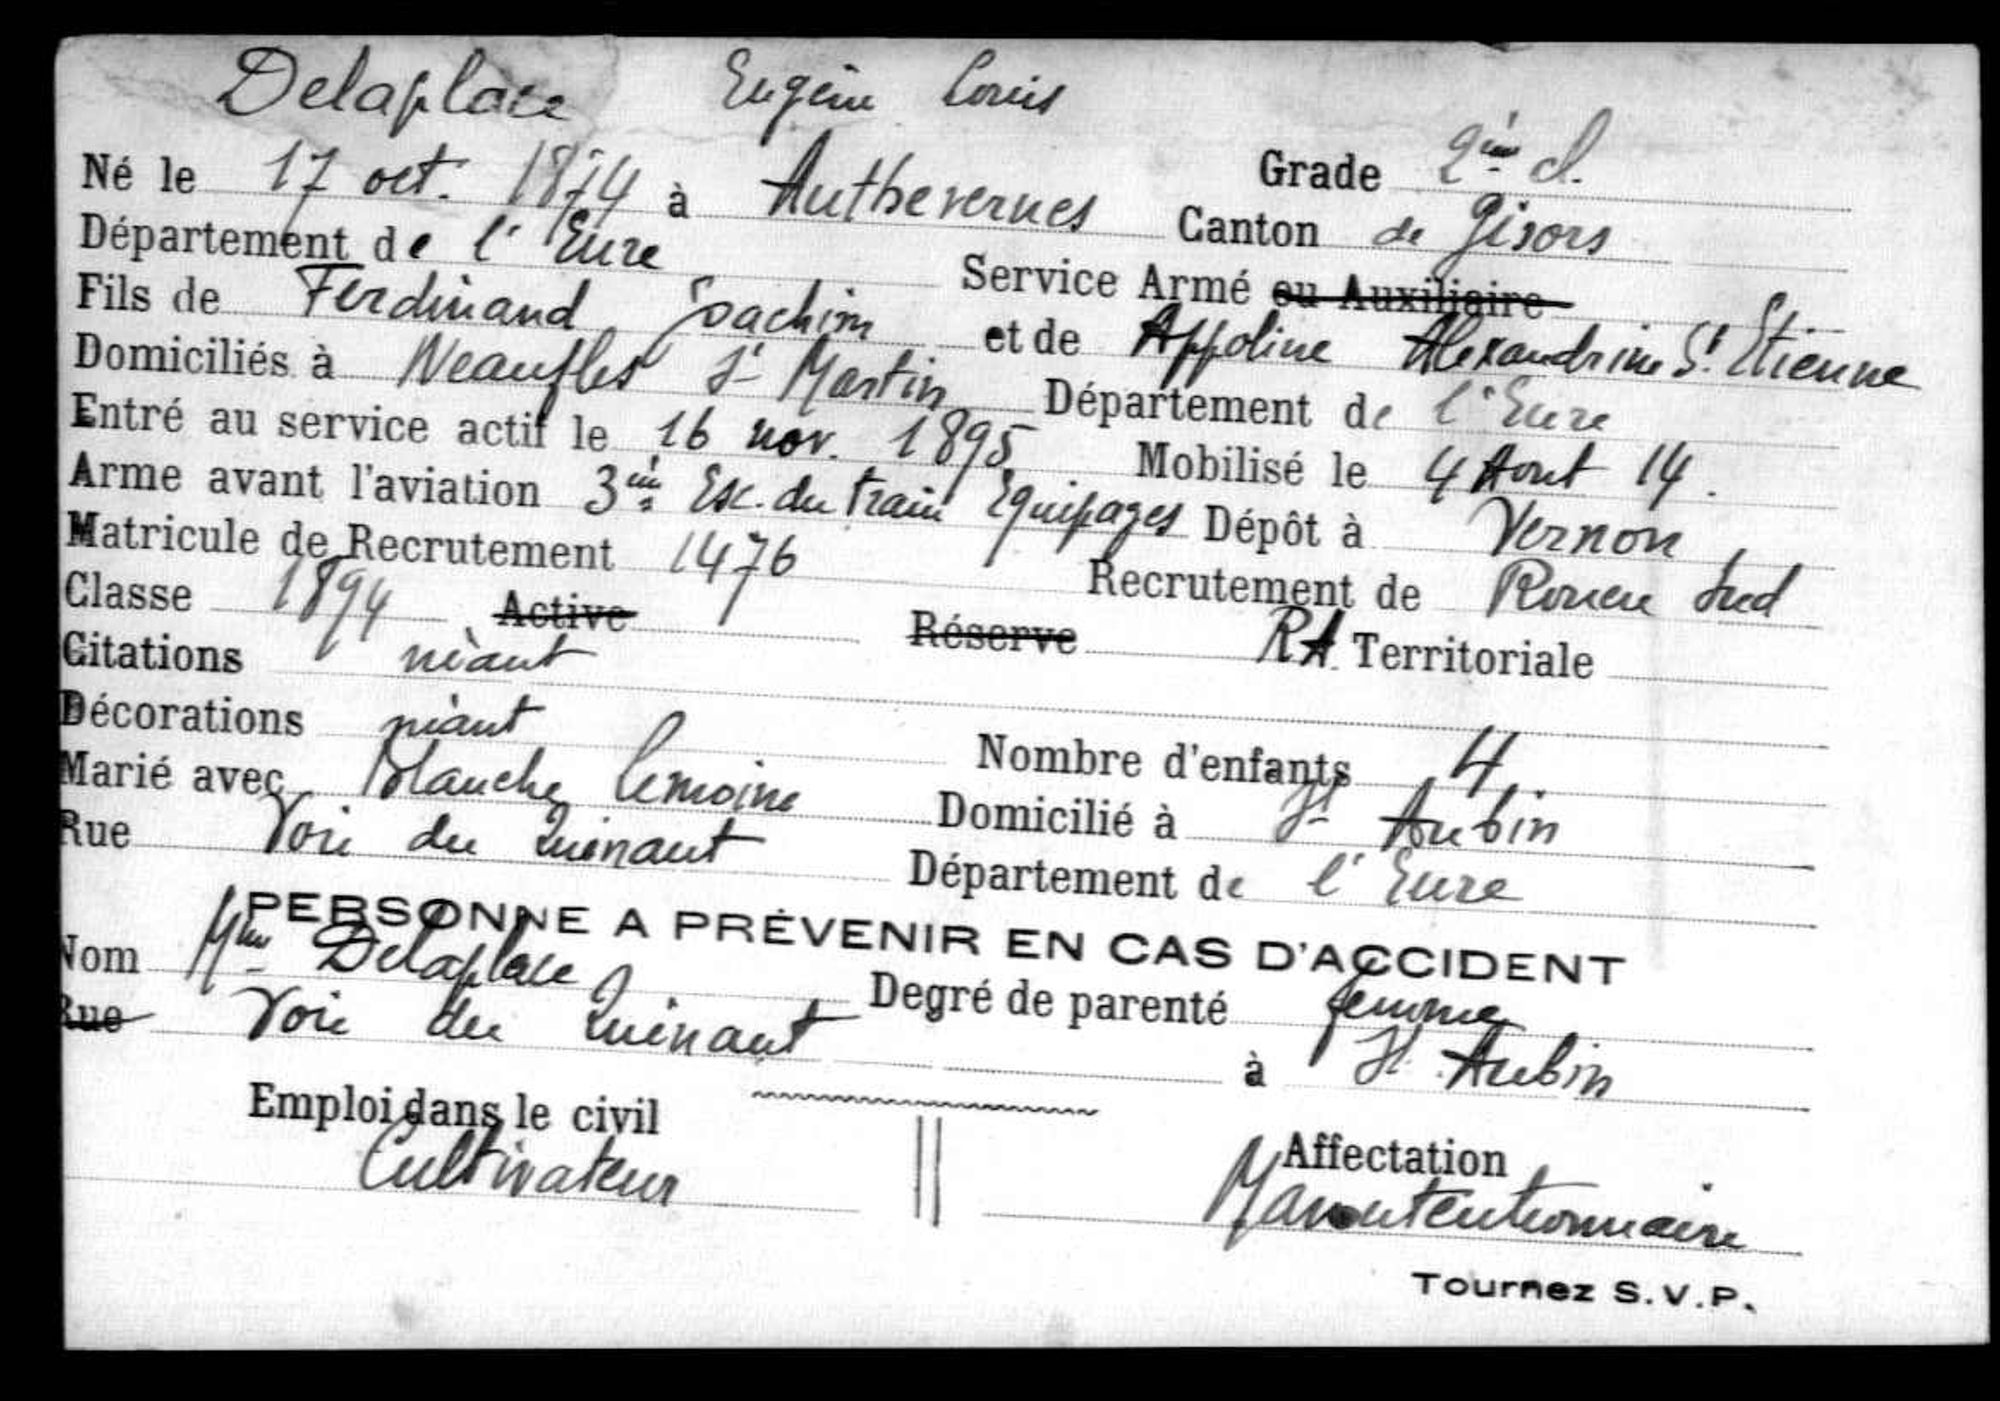 Delaplace Eugène Louis
Grade 2ème cl.
Né le 17 oct. 1874 à Authevernes Canton de Gisors
Département de l'Eure Service Armé ou Auxiliaire
Fils de Ferdinand Joachim et de Appoline Alexandrine St Etienne
Domiciliés à Neaufles St Martin Département de l'Eure
Entré au service actif le 16 nov. 1895 Mobilisé le 4 Aout 14.
Arme avant l'aviation 3ème Esc. du train Equipages Dépôt à Vernon
Matricule de Recrutement 1476 Recrutement de Rouen Sud
Classe 1894 Active Réserve RA Territoriale
Citations néant
Décorations néant Nombre d'enfants 4
Marié avec Blanche Lemoine Domicilié à St Aubin
Rue Voie du Département de l'Eure
PERSONNE A PRÉVENIR EN CAS D'ACCIDENT
Nom Mme Delaplace Degré de parenté femme
Rue Voie du à St Aubin
Emploi dans le civil Affectation
Cultivateur Manutentionnaire
Tournez S.V.P.